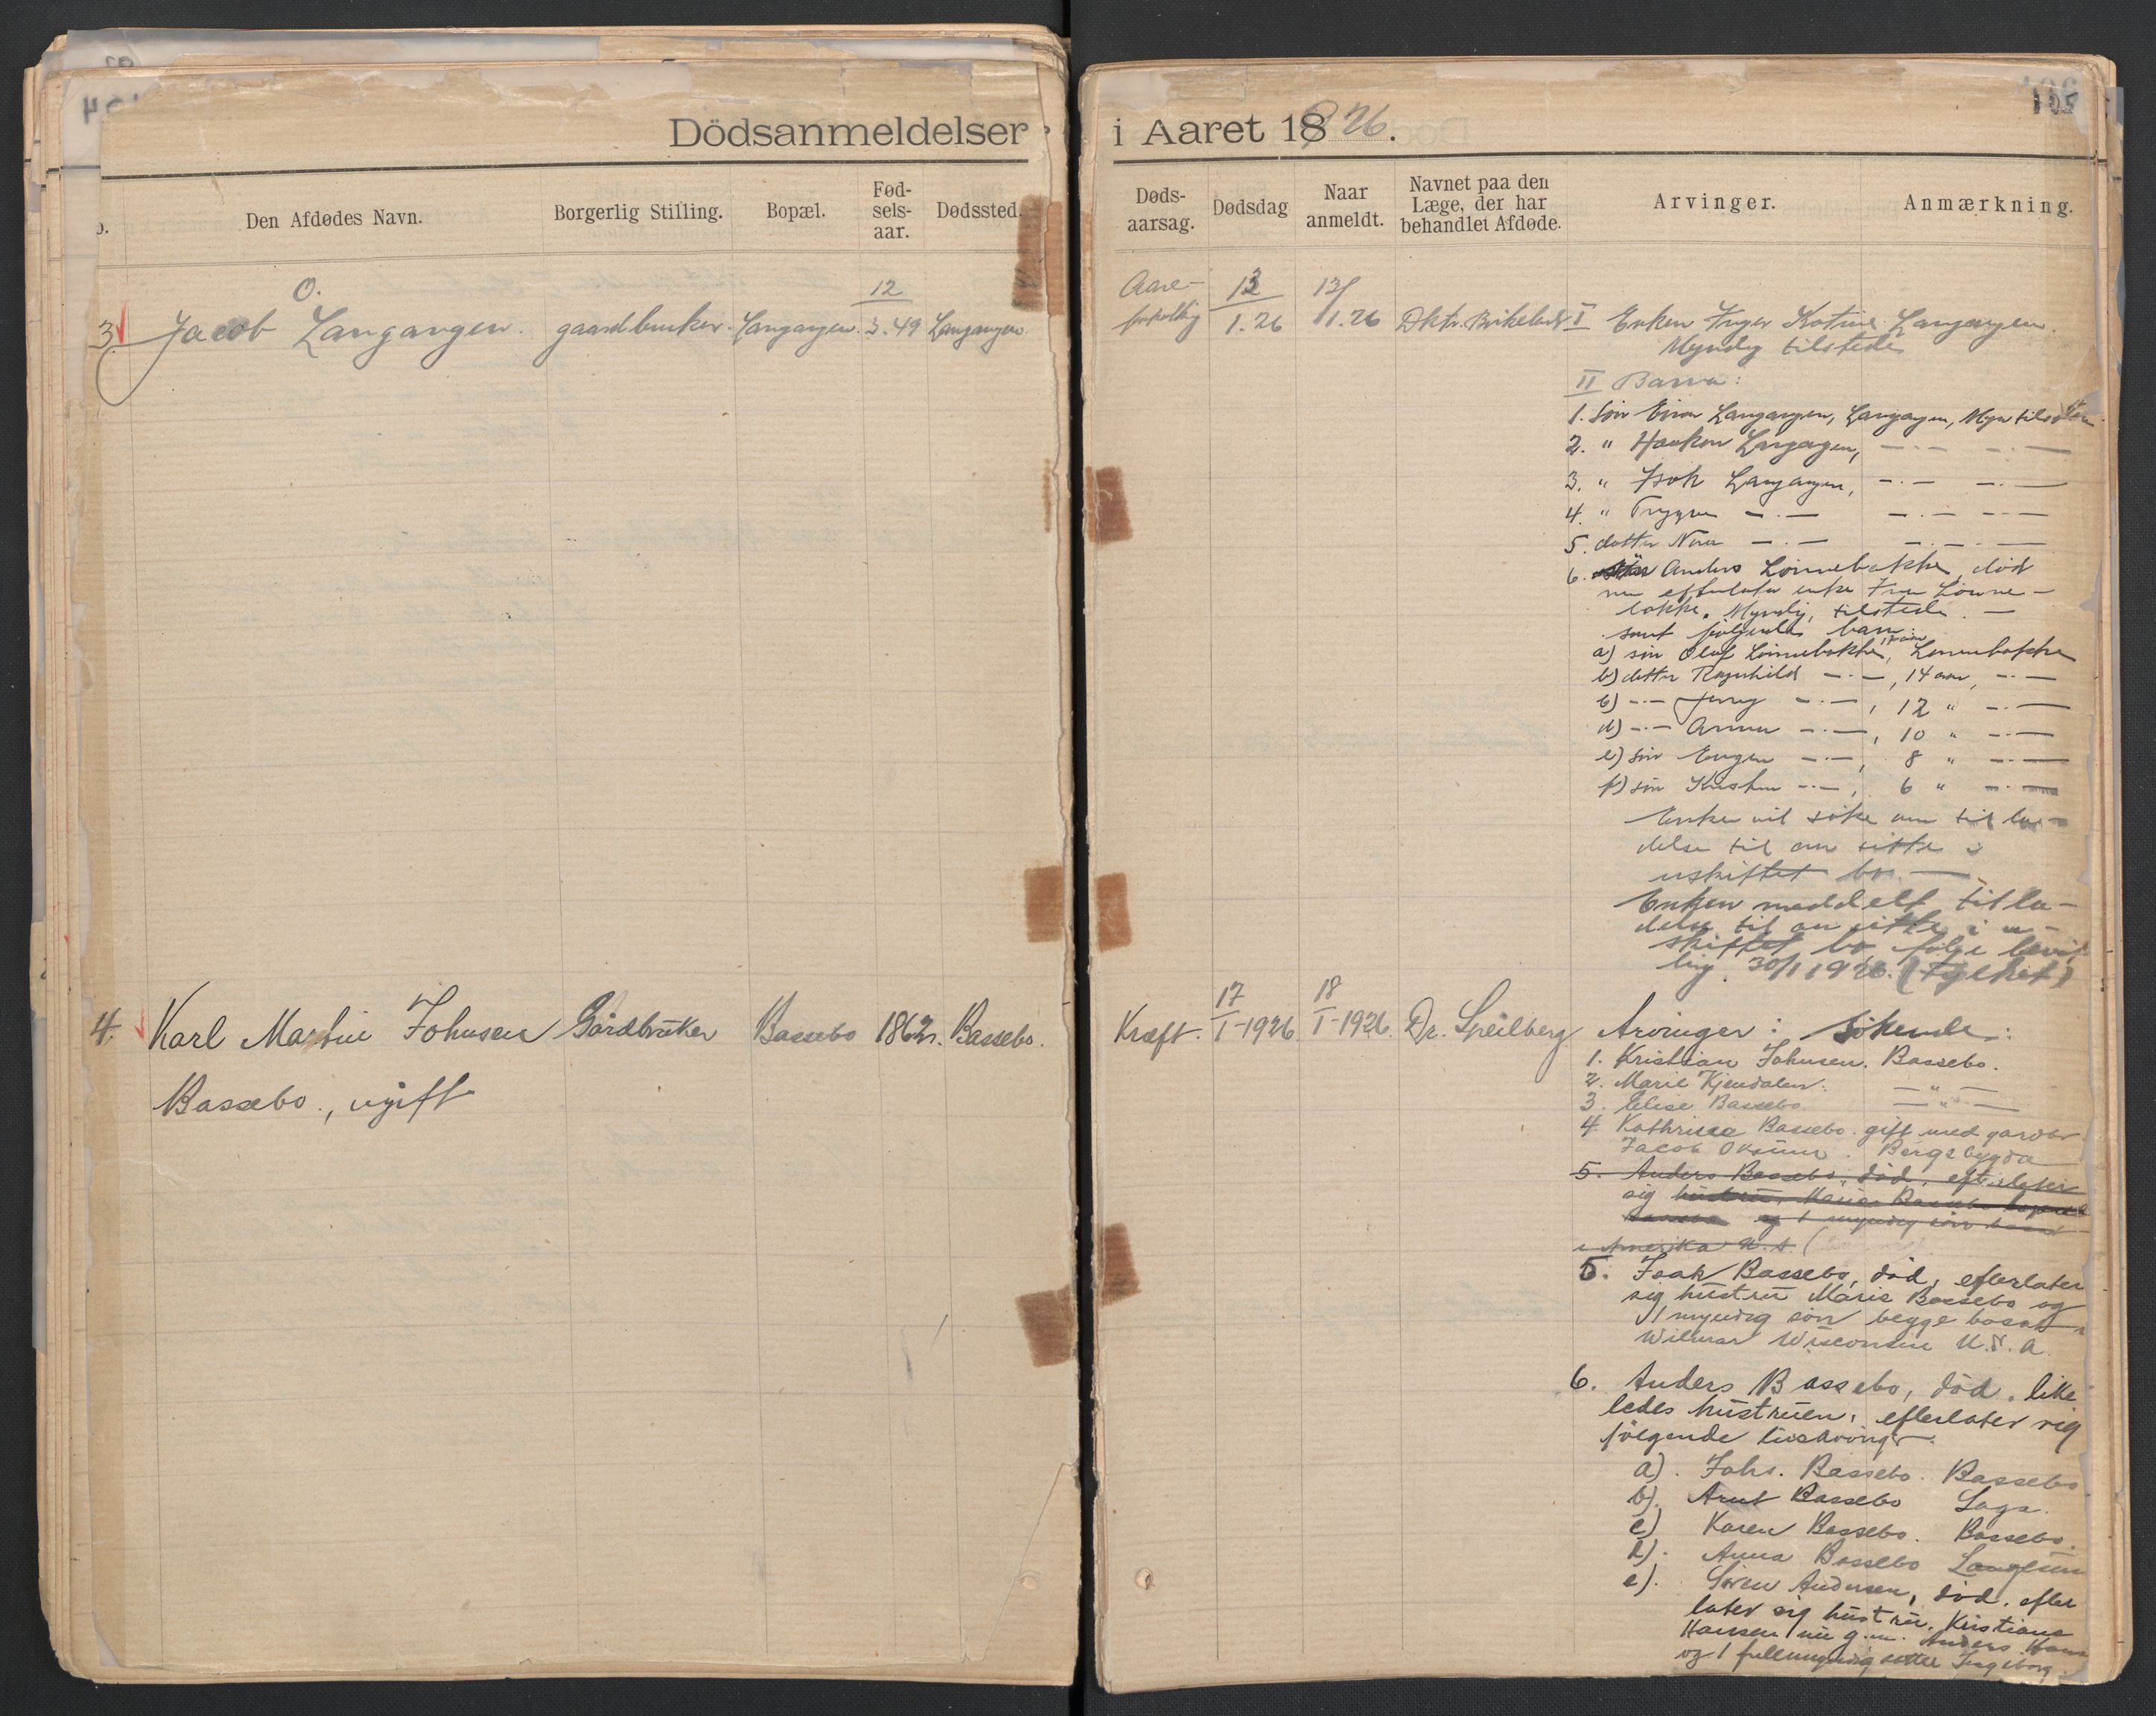 Dödsanmeldelser i Aaret 1926.
Den Afdødes Navn.
Borgerlig Stilling.
Bopæl.
Fød-
sels-
aar.
Dødssted.
Døds-
aarsag.
Dødsdag
Naar
anmeldt.
Navnet paa den
Læge, der har
behandlet Afdøde.
Arvinger.
Anmærkning.
3 Jacob O. Langangen. gaardbruker. Langangen. 12/3.49 Langangen
Aare-
13/1.26 13/1.26 Dktr.
I Enken Katrine Langangen.
Myndig tilstede
II Barn:
1. Sön Einar Langangen, Langangen, Myn tilstede
2. " Haakon Langangen, -.- -.-
3. " Isak Langangen, -.- -.-
4. " Trygve -.- -.- -.-
5. datter Nora -.- -.- -.-
6. Anders Lönnebakke, död
nu efterlater enke Lönne-
bakke. Myndig, tilstede. -
samt følgende barn:
a) sön Olaf Lönnebakke, Lönnebakke
b) datter Ragnhild -.-, 14 aar, -.-
c) -.- Jenny -.-, 12 " -.-
d) -.- Anna -.-, 10 " -.-
e) sön Eugen -.-, 8 " -.-
f) sön Kristen -.-, 6 " -.-
Enken vil söke om tilla-
delse til aa sitte i
uskiftet bo. -
Enken meddelt tilla-
delse til aa sitte i u-
skiftet bo følge bevil-
ling 30/1 1926. (Fylket)
4. Karl Martin Johnsen Gårdbruker Bassebo 1862. Bassebo.
Bassebo., ugift
Kræft. 17/I-1926 18/I-1926. Dr. Speilberg
Arvinger: Søskende:
1. Kristian Johnsen. Bassebo.
2. Marie Kjendalen. - " -
3. Elise Bassebo. - " -
4. Kathrine Bassebo. gift med gardbr.
Jacob Oksum. Bergsbygda
5. Anders Bassebo, död, efterlater
sig hustru, Maria Bassebo
og 1 myndig sön
i Amerika U.S. (
5. Isak Bassebo, død, efterlater
sig hustru Marie Bassebo og
1 myndig sön begge bosat
Wilmar Wisconsin U.S.A.
6. Anders Bassebo, död. like
ledes hustruen, efterlater sig
følgende livsarvinger.
a). Johs. Bassebo. Bassebo.
b). Arnt Bassebo
c) Karen Bassebo. Bassebo.
d). Anna Bassebo
e). Sören Andersen, død, efter
later sig hustru. Kristiane
Hansen nu g.m. Anders Hans
og 1 fullmyndig datter Ingeborg.